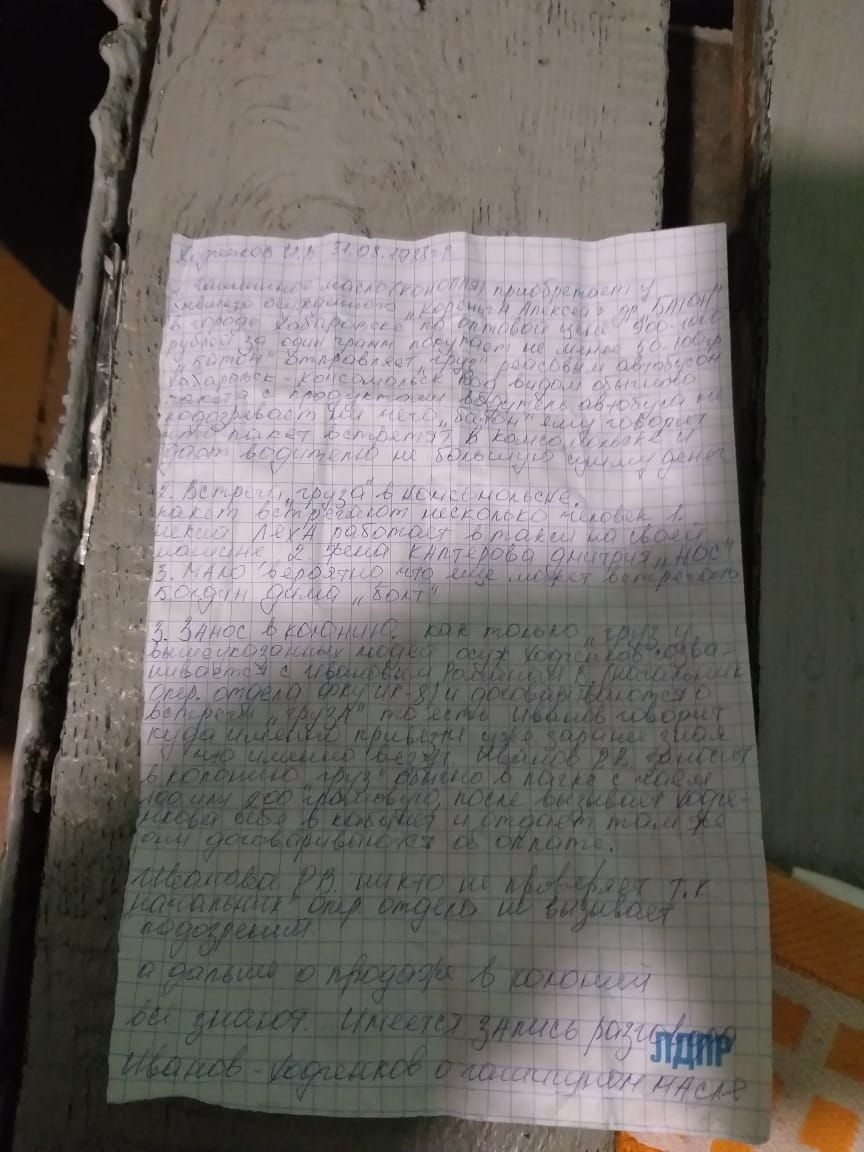 Ходженков И.В 31.08.1988г.р
1. Гашишное масло (конопля) приобретает у
бывшего осужденного "Корсы" Алексей" ОР "БАТОН"
в городе Хабаровске по оптовой цене 900-1000
рублей за один грамм покупает не менее 50-100гр
"Батон" отправляет "груз" рейсовым автобусом
Хабаровск - Комсомольск под видом обычного
пакета с продуктами водитель автобуса не
подозревает ни чего "батон" ему говорит
что пакет встретят в Комсомольске и
дает водителю не большую сумму денег
2. Встреча "груза" в Комсомольске.
пакет встречают несколько человек 1.
некий Леха работает в такси на своей
машине 2 жена Каптерова Дмитрия "Нос"
3. МАЛО вероятно что еще может встречать
Болдин Дима "болт"
3. Занос в колонию. как только "груз у
вышеуказанных людей осуж Ходженков созва-
нивается с Ивановым Романом В. (начальник
опер. отдела ФКУ ИК-8) и договариваются о
встрече "груза" то есть Иванов говорит
куда именно привезти уже заранее зная
что именно везут Иванов Р.В. заносит
в колонию "груз" обычно в пачке с чаем
100 или 200 граммовую, после вызывает Ходже-
нкова себе в кабинет и отдает там же
они договариваются об оплате.
Иванова Р.В. никто не проверяет т.к
начальник опер. отдела не вызывает
подозрений
а дальше о продаже в колонии
все знают. Имеется запись разговора
Иванов - Ходженков о гашишном масле
ЛДПР